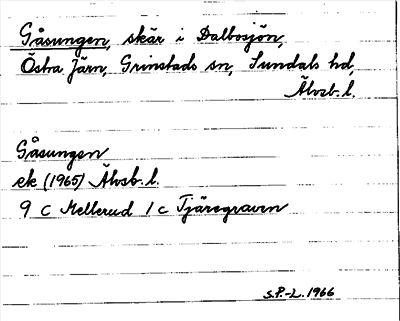 Gåsungen, skär i Dalbosjön,
Östra Järn, Grinstads sn, Sundals hd,
Älvsb. l.
Gåsungen
ek (1965) Älvsb. l.
9 C Mellerud 1 c Tjäregraven
S.P.-L. 1966